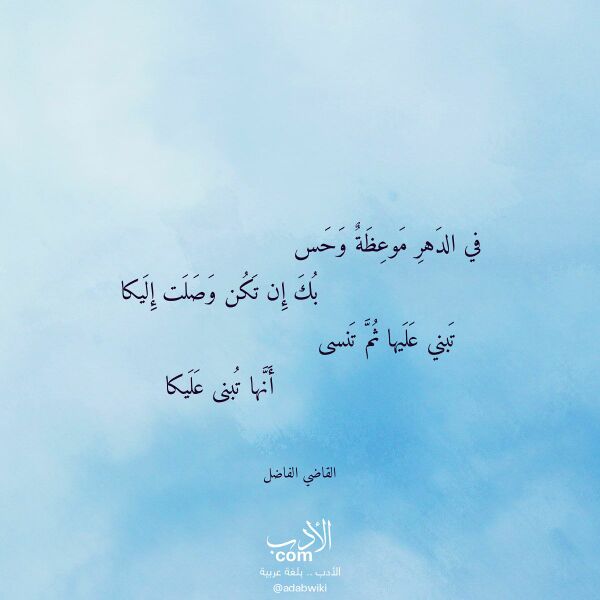 في الدَهرِ مَوعِظَةٌ وَحَس
بُكَ إِن تَكُن وَصَلَت إِلَيكا
تَبني عَلَيها ثُمَّ تَنسى
أَنَّها تُبنى عَلَيكا
القاضي الفاضل
الأدب
com
الأدب .. بلغة عربية
@adabwiki